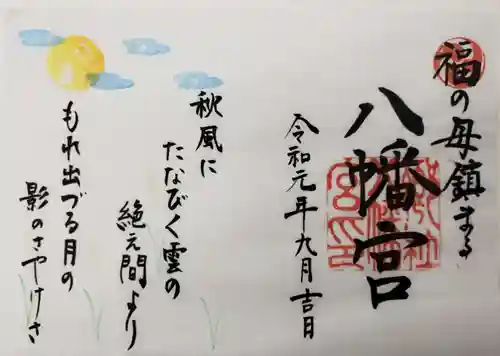 福の母鎮まる
八幡宮
令和元年九月吉日
秋風に
たなびく雲の
絶え間より
もれ出づる月の
影のさやけさ